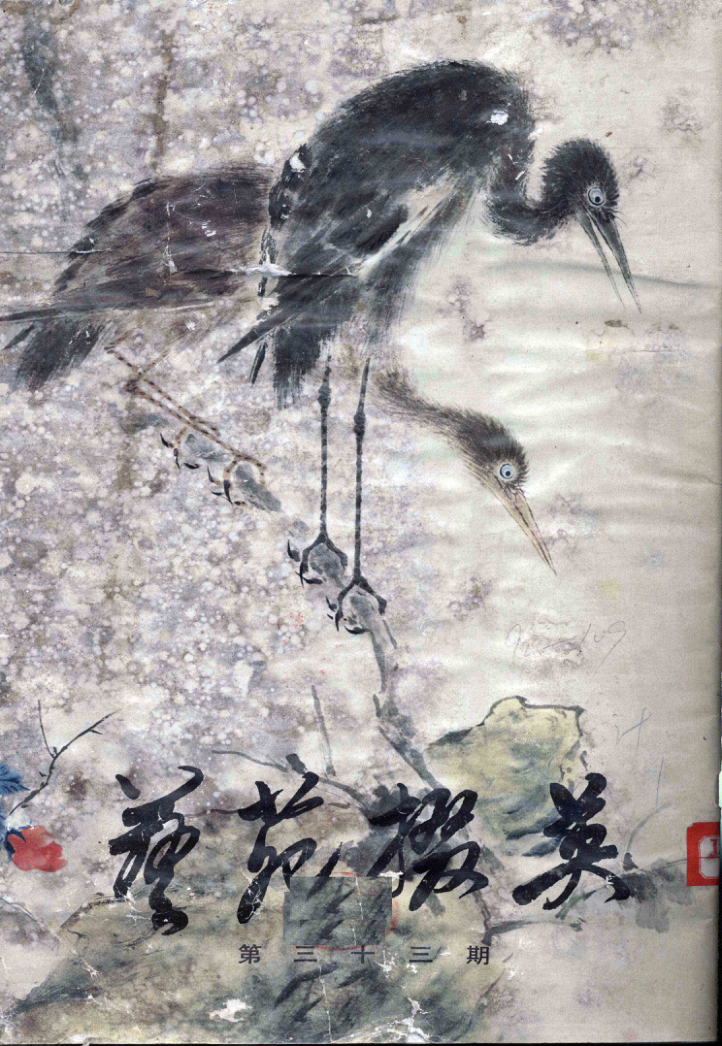 藝苑掇英
第三十三期